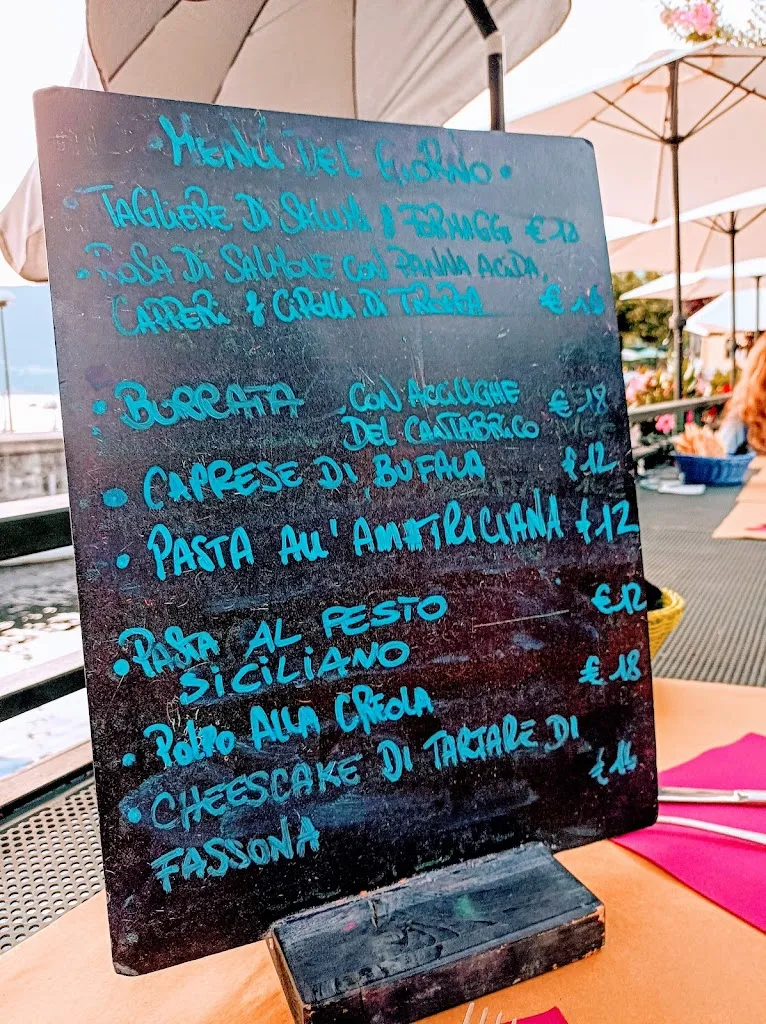 MENÙ DEL GIORNO
TAGLIERE DI SALUMI & FORMAGGI €18
ROSA DI SALMONE CON PANNA ACIDA,
CAPPERI & CIPOLLA DI TROPEA €16
BURRATA CON ACCIUGHE €18
DEL CANTABRICO
CAPRESE DI BUFALA €12
PASTA ALL'AMATRICIANA €12
PASTA AL PESTO €12
SICILIANO
POLPO ALLA CREOLA €18
CHEESCAKE DI TARTARE DI
FASSONA